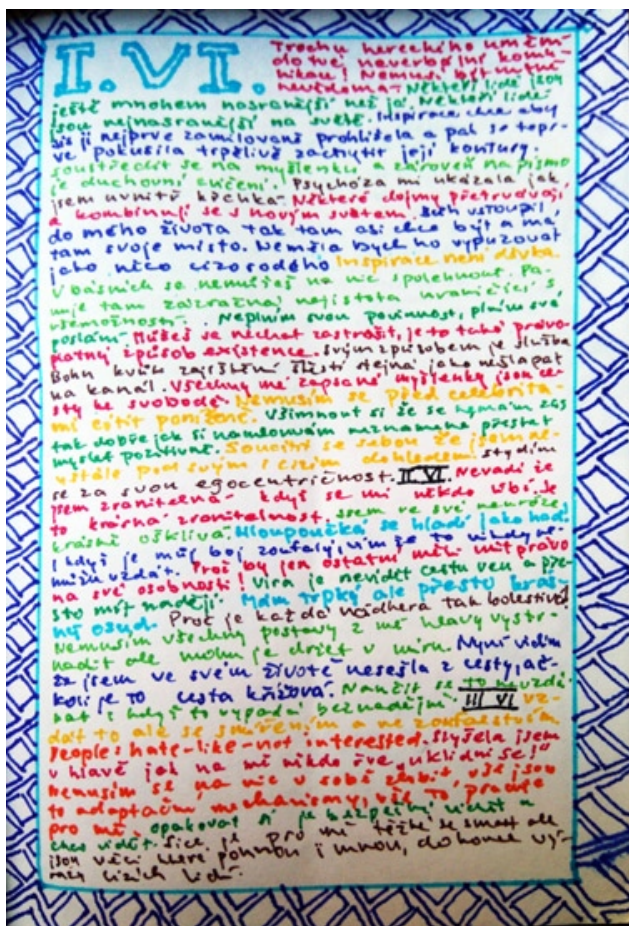 I.VI. Trochu hereckého umění
do tvé neverbální komu-
nikou! Nemusí být nutně
nevědomá. Někteří lidé jsou
ještě mnohem nasranější než já. Někteří lidé
jsou nejnasranější na světě. Inspirace chce aby
sis ji nejprve zamilovaně prohlížela a pak se tepr-
ve pokusila trpělivě zachytit její kontury.
soustředit se na myšlenku a zároveň na písmo
je duchovní cvičení. Psychóza mi ukázala jak
jsem uvnitř křehká. Některé dojmy přetrvávají
a kombinují se s novým světem. Bůh vstoupil
do mého života tak tam asi chce být a má
tam svoje místo. Neměla bych ho vypuzovat
jako něco cizorodého Inspirace není děvka.
V básních se nemůžeš na nic spolehnout. Pa-
nuje tam zázračná nejistota hraničící s
všemožností. Neplním svou povinnost, plním své
poslání. Můžeš se nechat zastrašit, je to také právo
platný způsob existence. Svým způsobem je služba
Bohu kvůli zajištění štěstí stejná jako nešlapat
na kanál. Všechny mé zapsané myšlenky jsou ce-
sty ke svobodě. Nemusím se před celebrita-
mi cítit poníženě. Všimnout si že se nemám zas
tak dobře jak si namlouvám neznamená přestat
myslet pozitivně. Soucítit se sebou že jsem ne-
ustále pod svým i cizím dohledem. stydím
se za svou egocentričnost. II.VI. Nevadí že
jsem zranitelná - když se mi někdo líbí. Je
to krásná zranitelnost. jsem ve své neuróze
krásně ošklivá. Hloupoučká se hladí jako had.
I když je můj boj zoufalý, vím že to nikdy ne-
můžu vzdát. Proč by jen ostatní měli mít právo
na své osobnosti! Víra je nevidět cestu ven a pře-
sto mít naději. Mám trpký ale přesto krás-
ný osud. Proč je každá nádhera tak bolestivá?
Nemusím všechny postavy z mé hlavy vystr-
nadit ale mohu je držet v míru. Nyní vidím
že jsem ve svém životě nesešla z cesty, ač-
koli je to cesta křížová. Naučit se to nevzdá-
vat i když to vypadá beznadějně III VI vz-
dát to ale se smířením a ne zoufalstvím.
People: hate-like-not interested. Slyšela jsem
v hlavě jak na mě někdo řve „uklidni se!"
nemusím se na nic v sobě zlobit, vše jsou
to adaptační mechanismy, vše to pracuje
pro mě. opakovat si je bezpečné vidět a
chci vidět. Sice je pro mě těžké se smát ale
jsou věci které pohnou i mnou, dokonce vý-
razy cizích lidí.